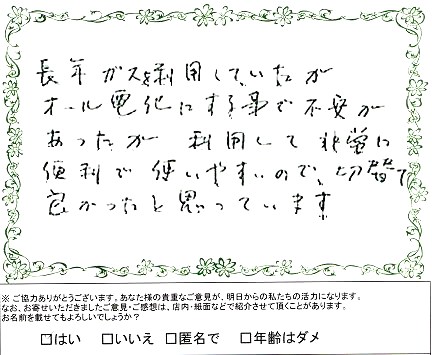 長年ガスを利用していたが
オール電化にする事で不安が
あったが 利用して非常に
便利で使いやすいので、切替て
良かったと思っています
※ ご協力ありがとうございます。あなた様の貴重なご意見が、明日からの私たちの活力になります。
なお、お寄せいただきましたご意見・ご感想は、店内・紙面などで紹介させて頂くことがあります。
お名前を載せてもよろしいでしょうか？
□はい □いいえ □匿名で □年齢はダメ